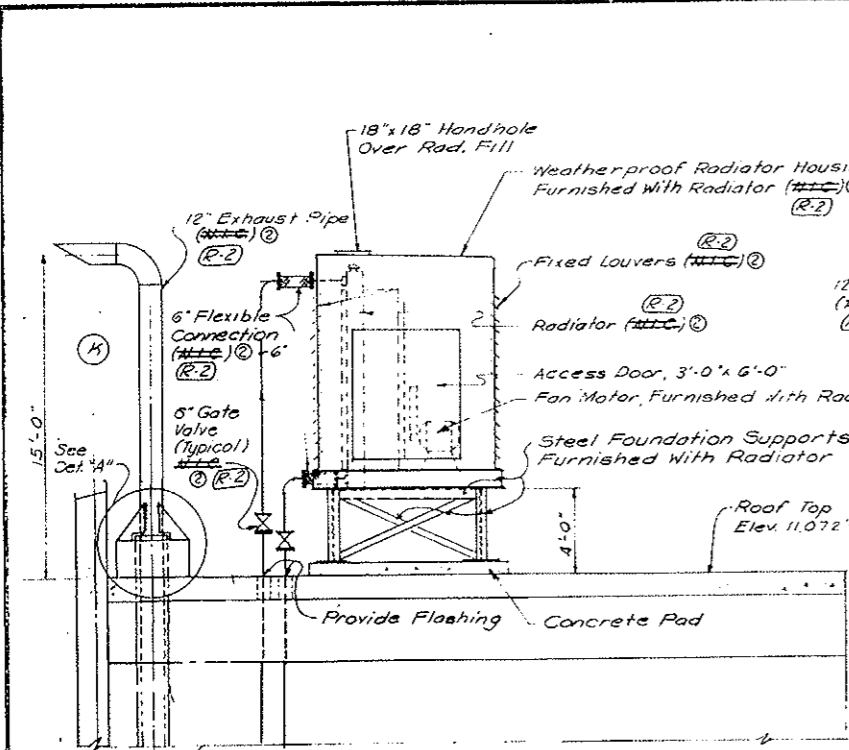 18"x18" Handhole
Over Rad. Fill
Weatherproof Radiator Housi
Furnished With Radiator (N.I.C.) ②
(R-2)
12" Exhaust Pipe
(N.I.C.) ②
(R-2)
(R-2)
Fixed Louvers (N.I.C.) ②
6" Flexible
Connection
(N.I.C.) ② -6"
(R-2)
(R-2)
Radiator (N.I.C.) ②
12
K
Access Door, 3'-0" x 6'-0"
Fan Motor, Furnished With Rad
6" Gate
Valve
(Typical)
N.I.C.
② (R-2)
Steel Foundation Supports
Furnished With Radiator
15'-0"
See
Det. "A"
4'-0"
Roof Top
Elev. 11,072'
Provide Flashing
Concrete Pad